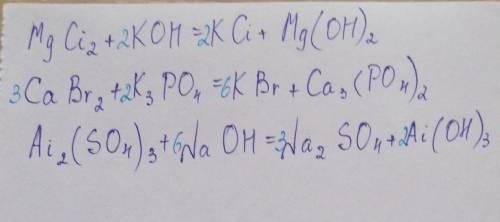 Mg Ci₂ + 2KOH = 2K Ci + Mg(OH)₂
3Ca Br₂ + 2K₃ PO₄ = 6K Br + Ca₃(PO₄)₂
Ai₂(SO₄)₃ + 6Na OH = 3Na₂ SO₄ + 2Ai(OH)₃